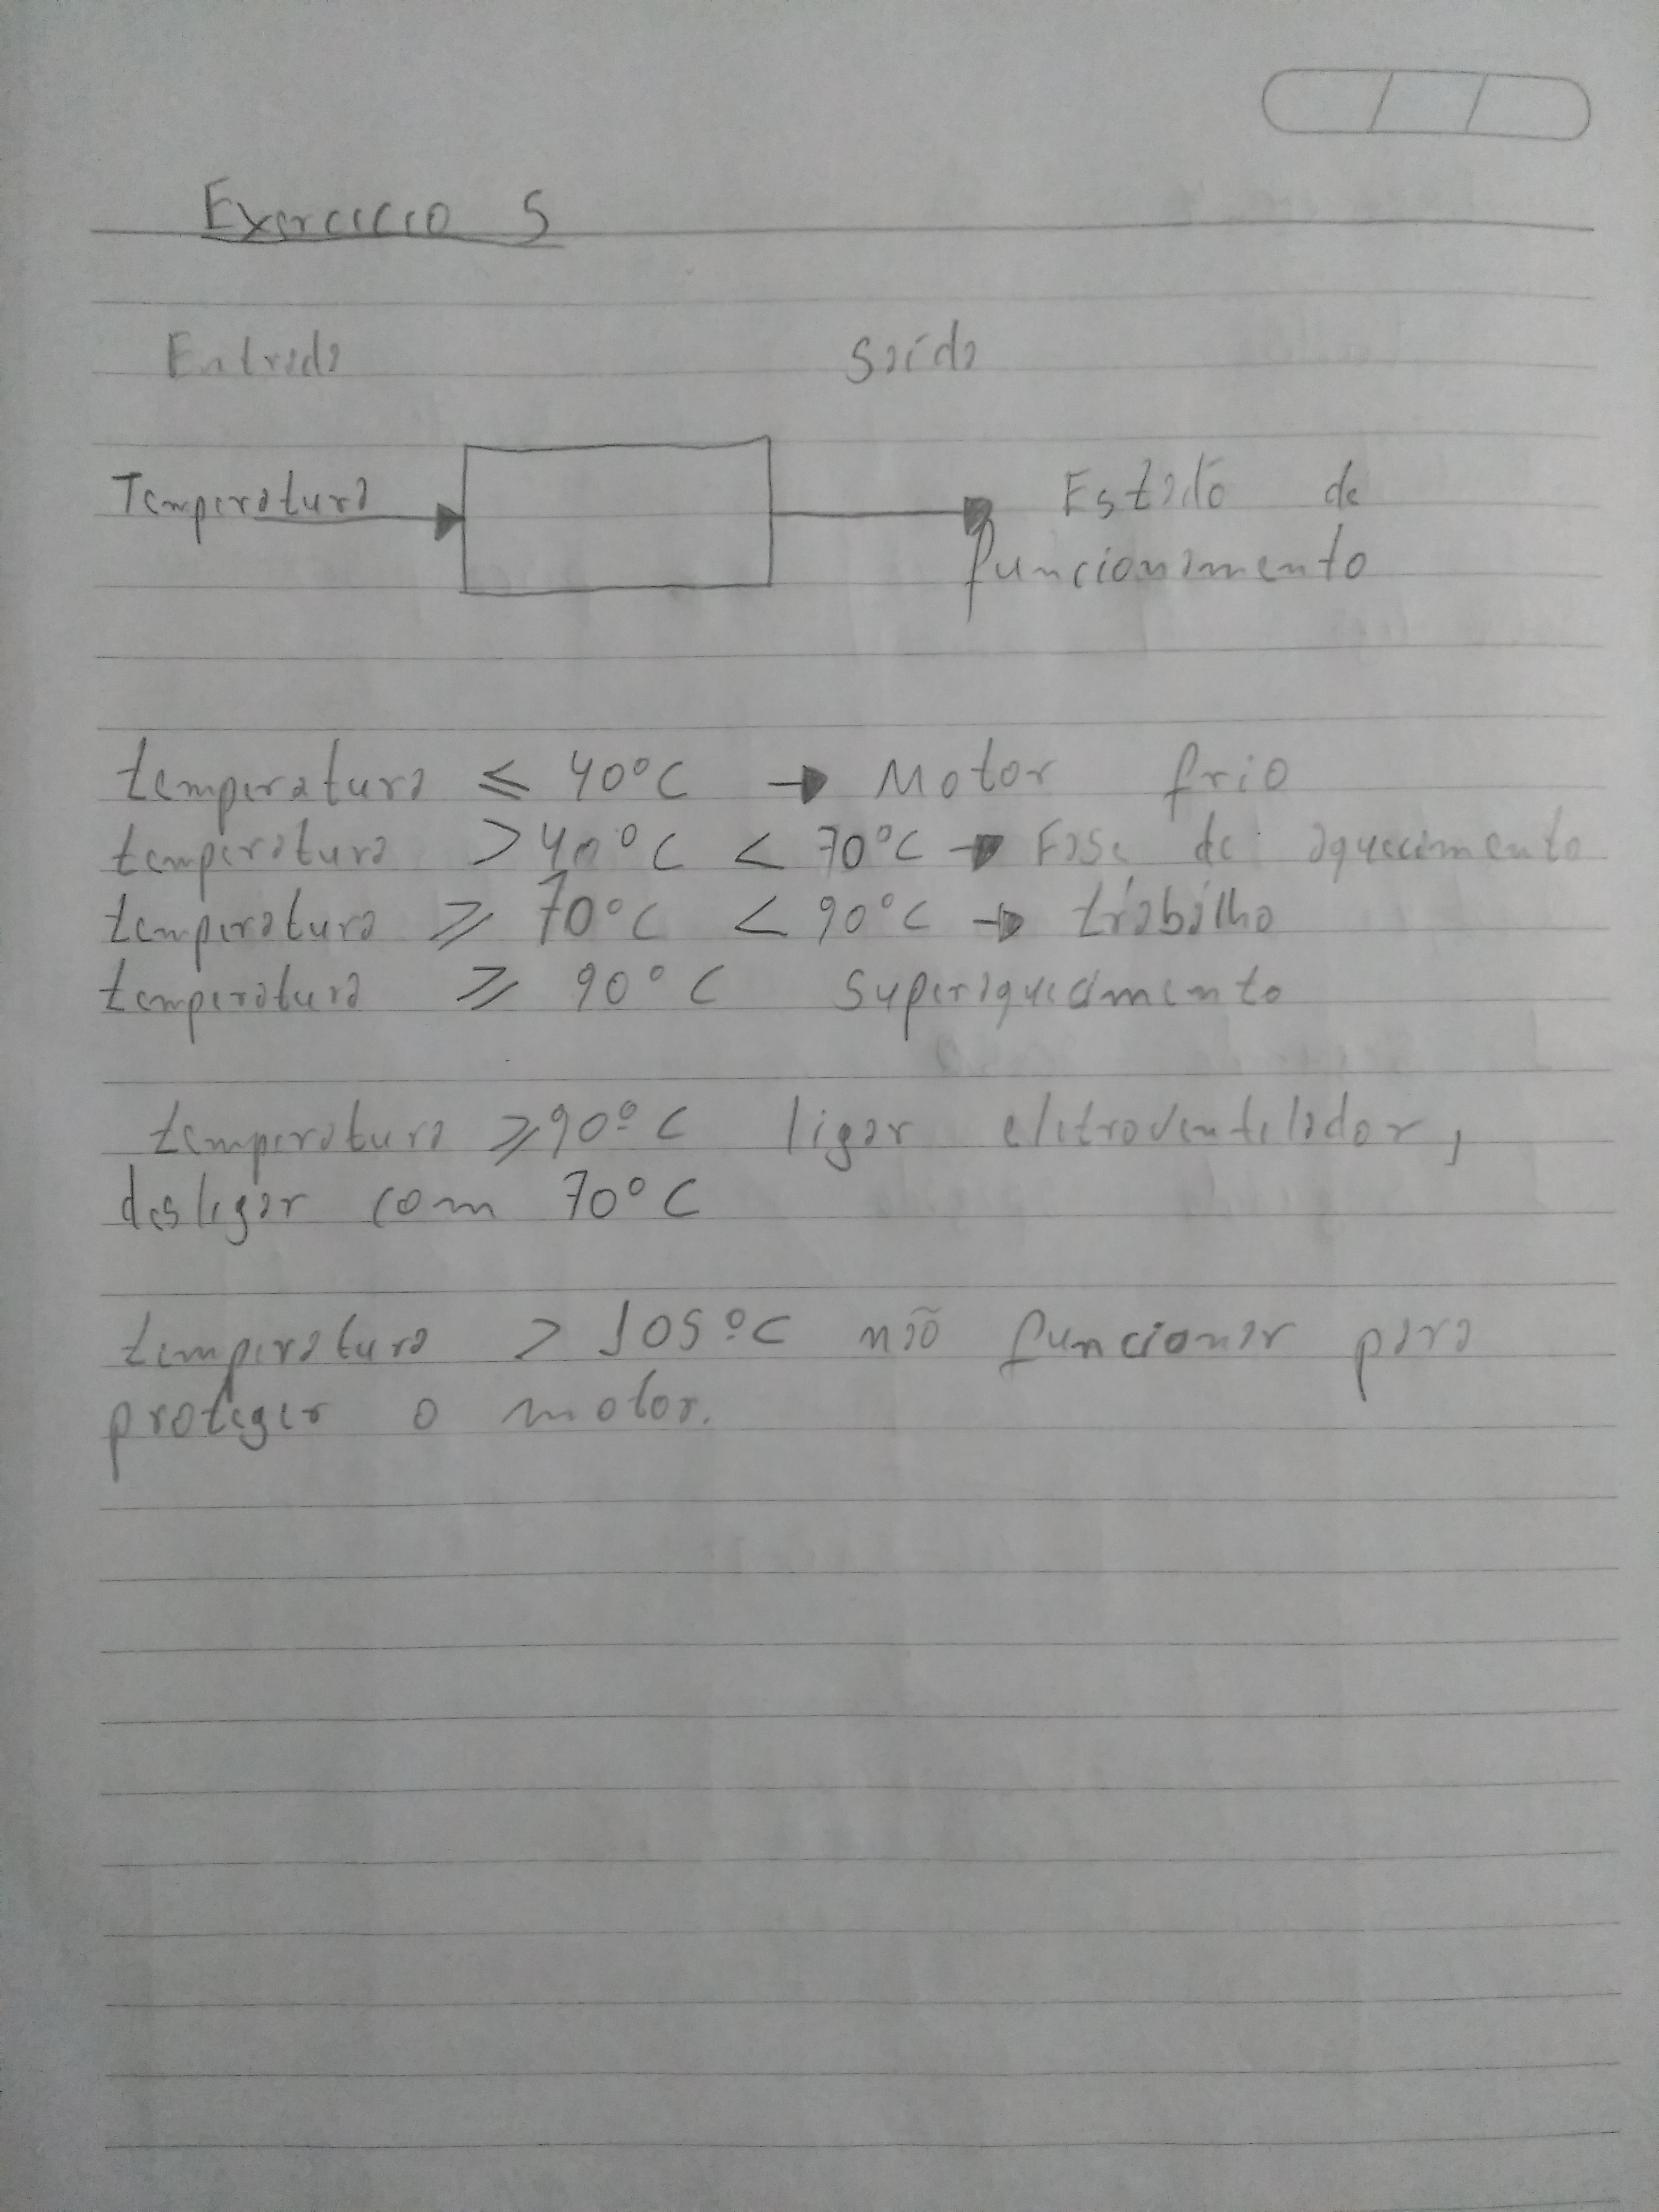 Exercicio 5
Entrada Saída
Temperatura Estado de
funcionamento
temperatura ⩽ 40°C → Motor frio
temperatura >40°C < 70°C → Fase de aquecimento
temperatura ⩾ 70°C < 90°C → trabalho
temperatura ⩾ 90°C superaquecimento
temperatura ⩾90ºC ligar eletroventilador,
desligar com 70°C
temperatura > 105ºC não funcionar para
proteger o motor.